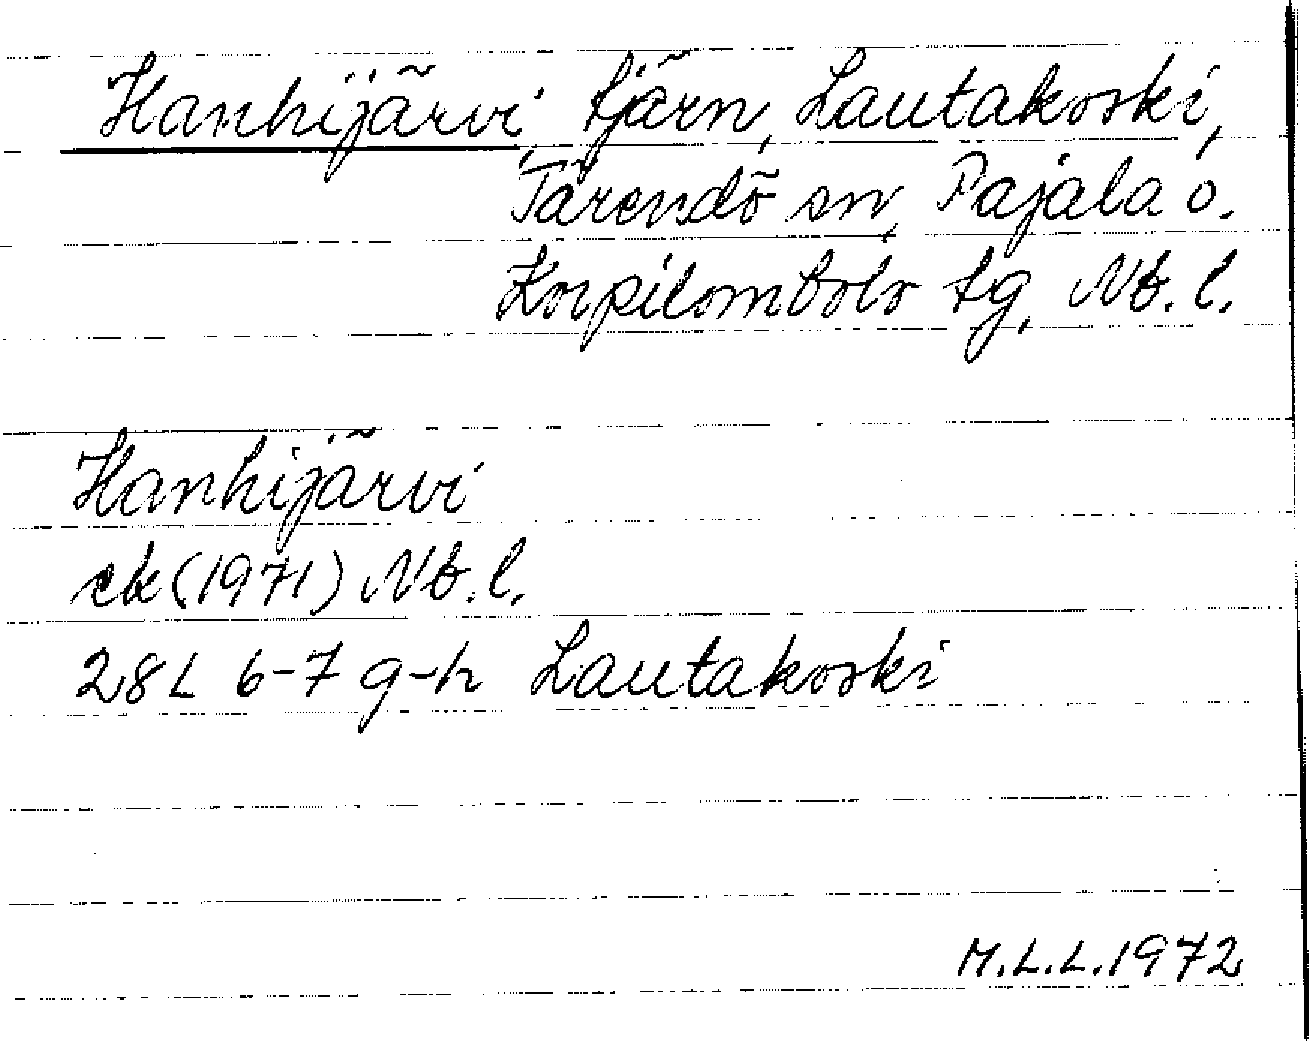 Hanhijärvi, tjärn, Lautakoski,
Tärendö sn, Pajala o.
Korpilombolo tg, Nb. l.
Hanhijärvi
ek (1971) Nb. l.
28L 6-7 g-h Lautakoski
M.L.L. 1972